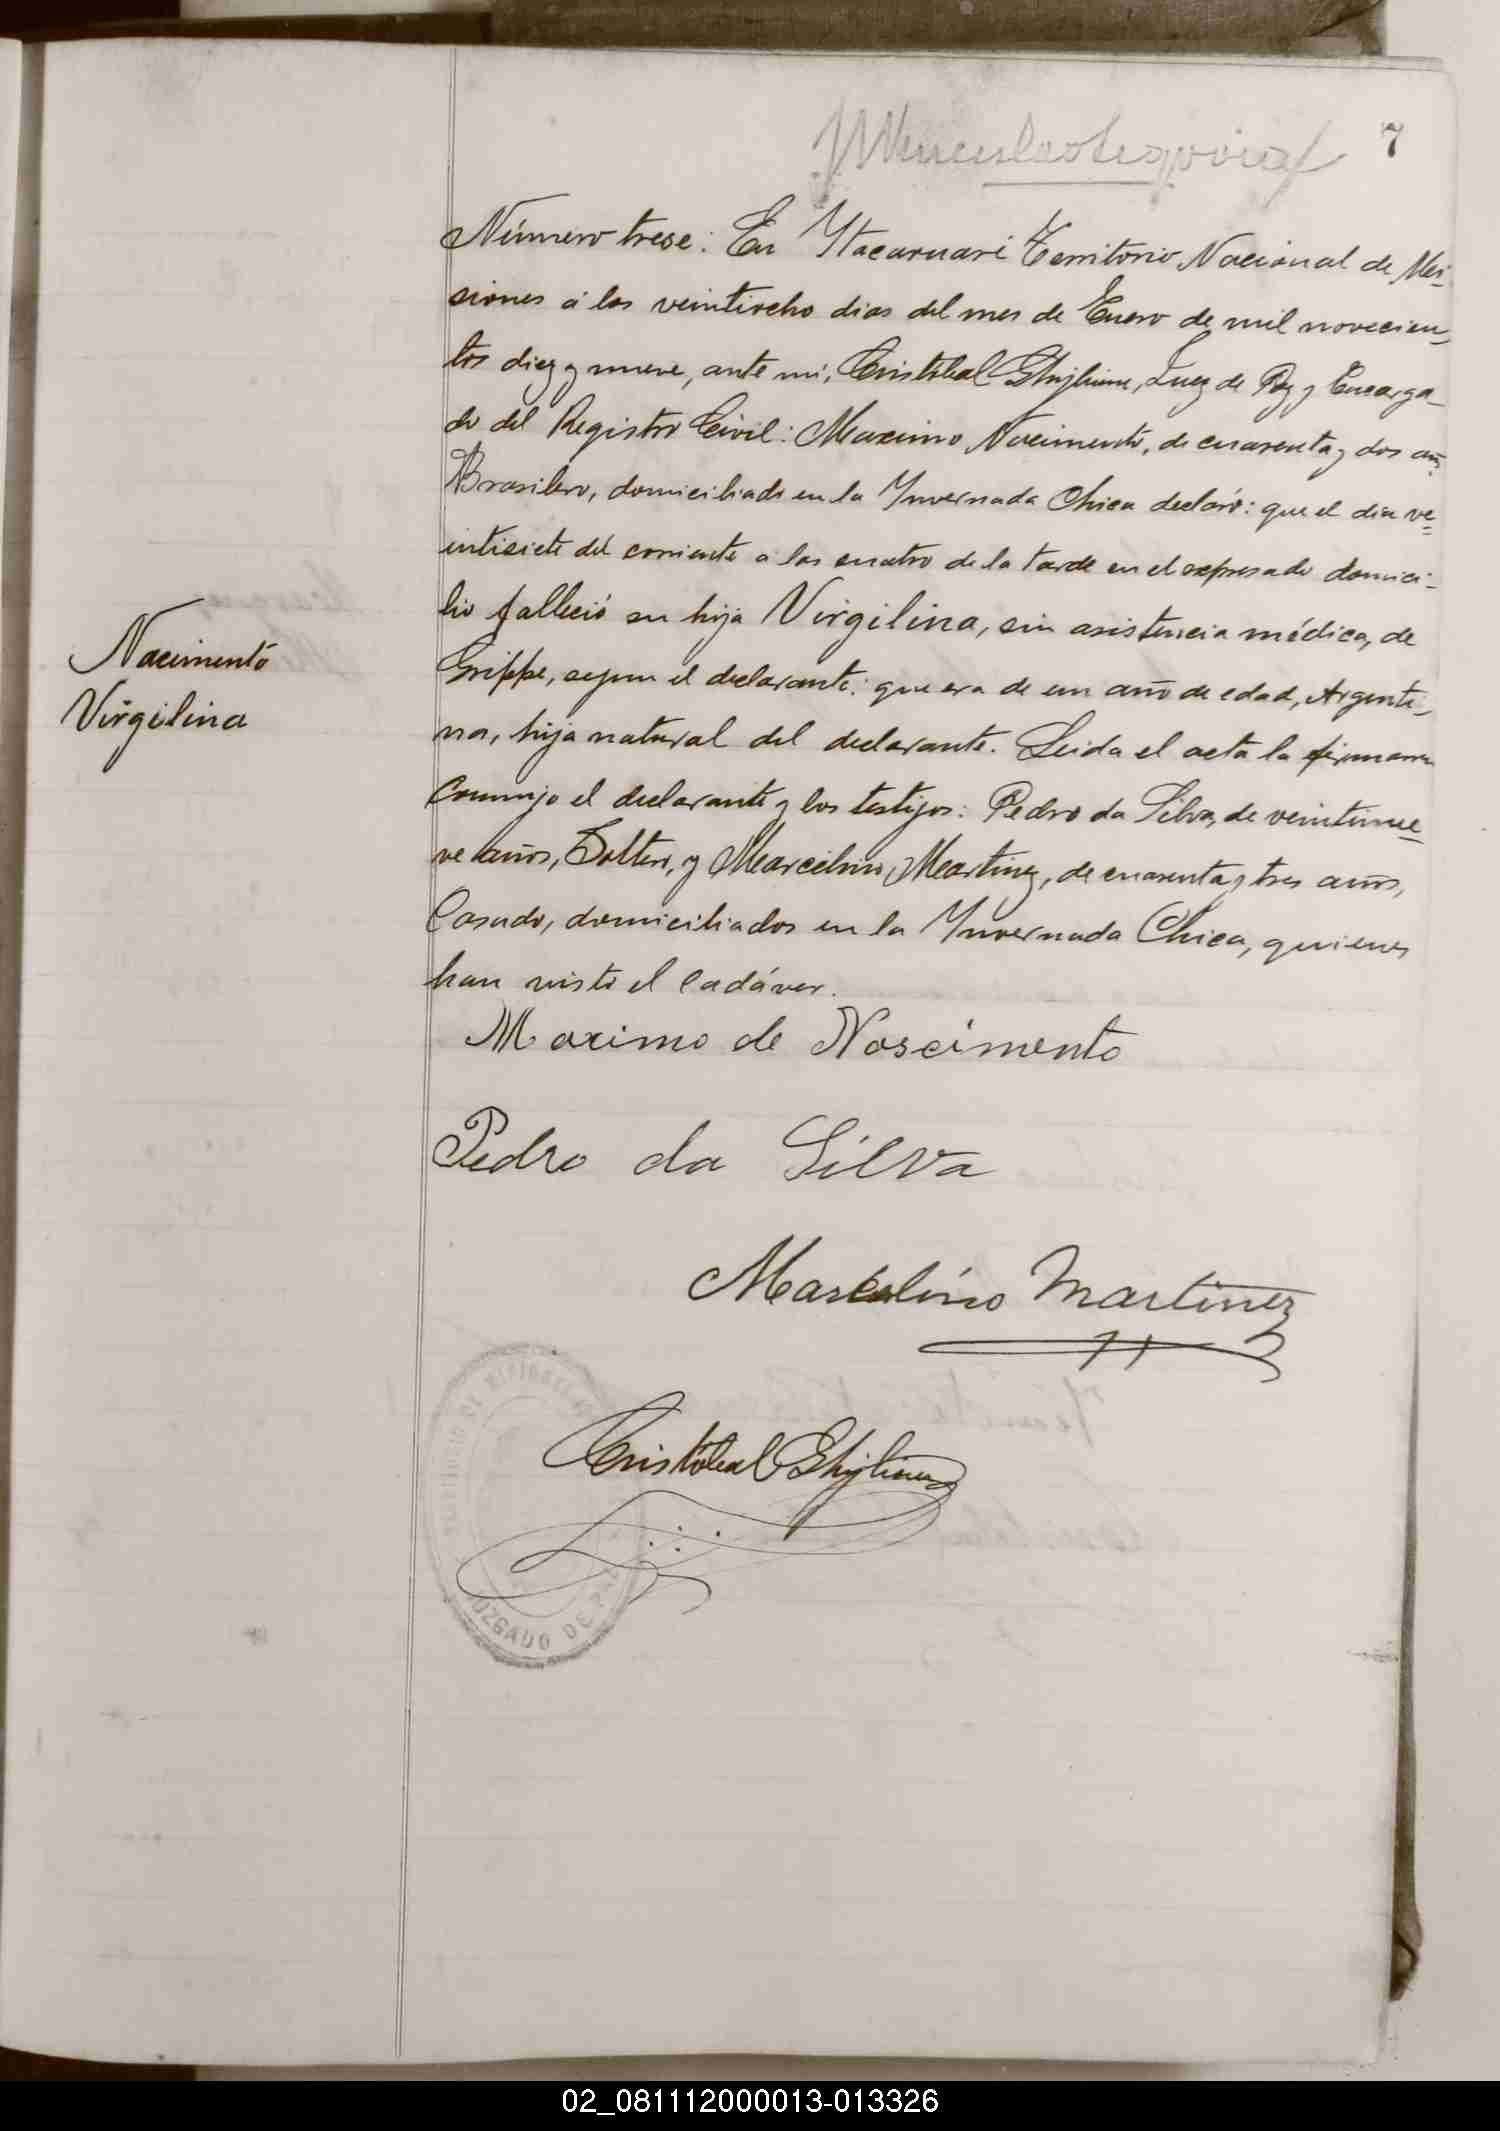 7
Número trese: En Ytacaruaré Territorio Nacional de Mi-
siones á los veintiocho dias del mes de Enero de mil novecien-
tos diez y nueve, ante mi, Cristóbal Ghiglione, Juez de Paz y Encarga-
do del Registro Civil: Maximo Nacimento, de cuarenta y dos añs
Brasilero, domiciliado en la Ynvernada Chica declaró: que el dia ve-
intisiete del corriente a las cuatro de la tarde en el expresado domici-
lio falleció su hija Virgilina, sin asistencia médica, de
Grippe, segun el declarante: que era de un año de edad, Argenti-
na, hija natural del declarante. Leida el acta la firmaron
conmigo el declarante y los testigos: Pedro da Silva, de veintinue-
ve años, Soltero, y Marcelino Martinez, de cuarenta y tres años,
Casado, domiciliados en la Ynvernada Chica, quienes
han visto el cadáver.
Nacimento
Virgilina
Maximo de Nascimento
Pedro da Silva
Marcelino Martinez
Cristóbal Ghiglione
JUZGADO DE PAZ
02_081112000013-013326